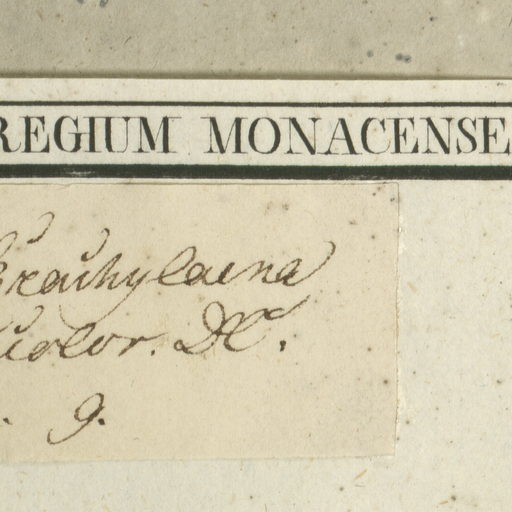 REGIUM MONACENSE
Brachylaena
color. DC.
. 9.